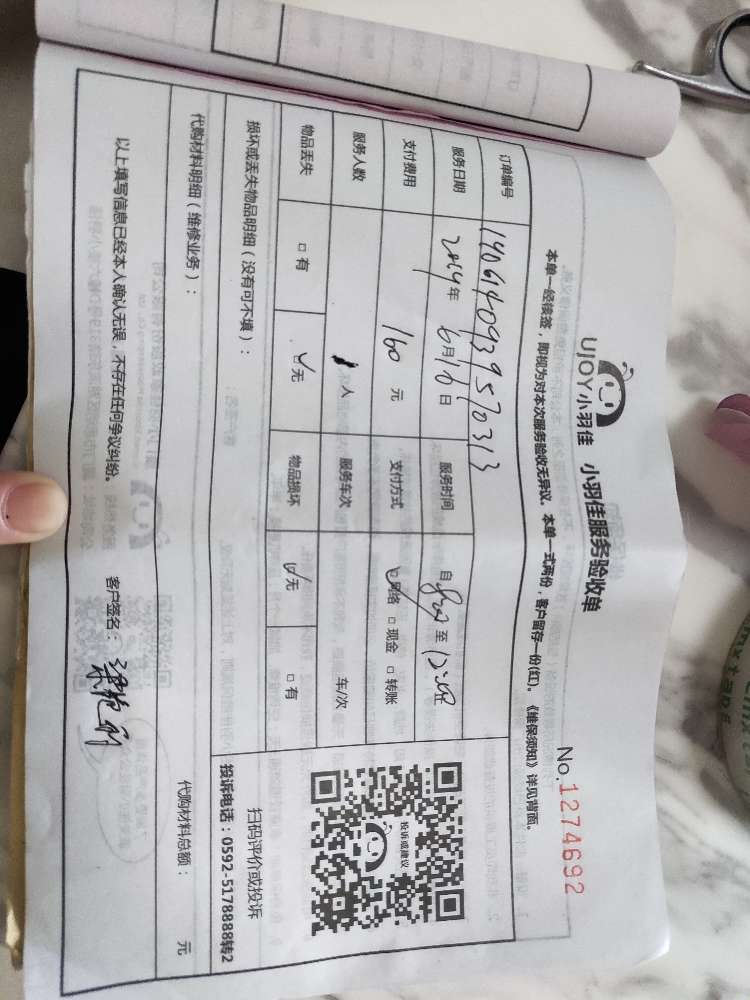 UJOY小羽佳 小羽佳服务验收单
No.1274692
本单一经核签，即视为对本次服务验收无异议。本单一式两份，客户留存一份(红)。《维保须知》详见背面。
订单编号
服务日期 年 6月16日 服务时间 自 至
支付费用 160 元 支付方式 ☑网络 □现金 □转账
服务人数 1人 服务车次 车/次
物品丢失 □有 ☑无 物品损坏 ☑无 □有
投诉或建议
扫码评价或投诉
投诉电话：0592-5178888转2
损坏或丢失物品明细（没有可不填）：
代购材料明细（维修业务）： 代购材料总额： 元
以上填写信息已经本人确认无误，不存在任何争议纠纷。 客户签名：